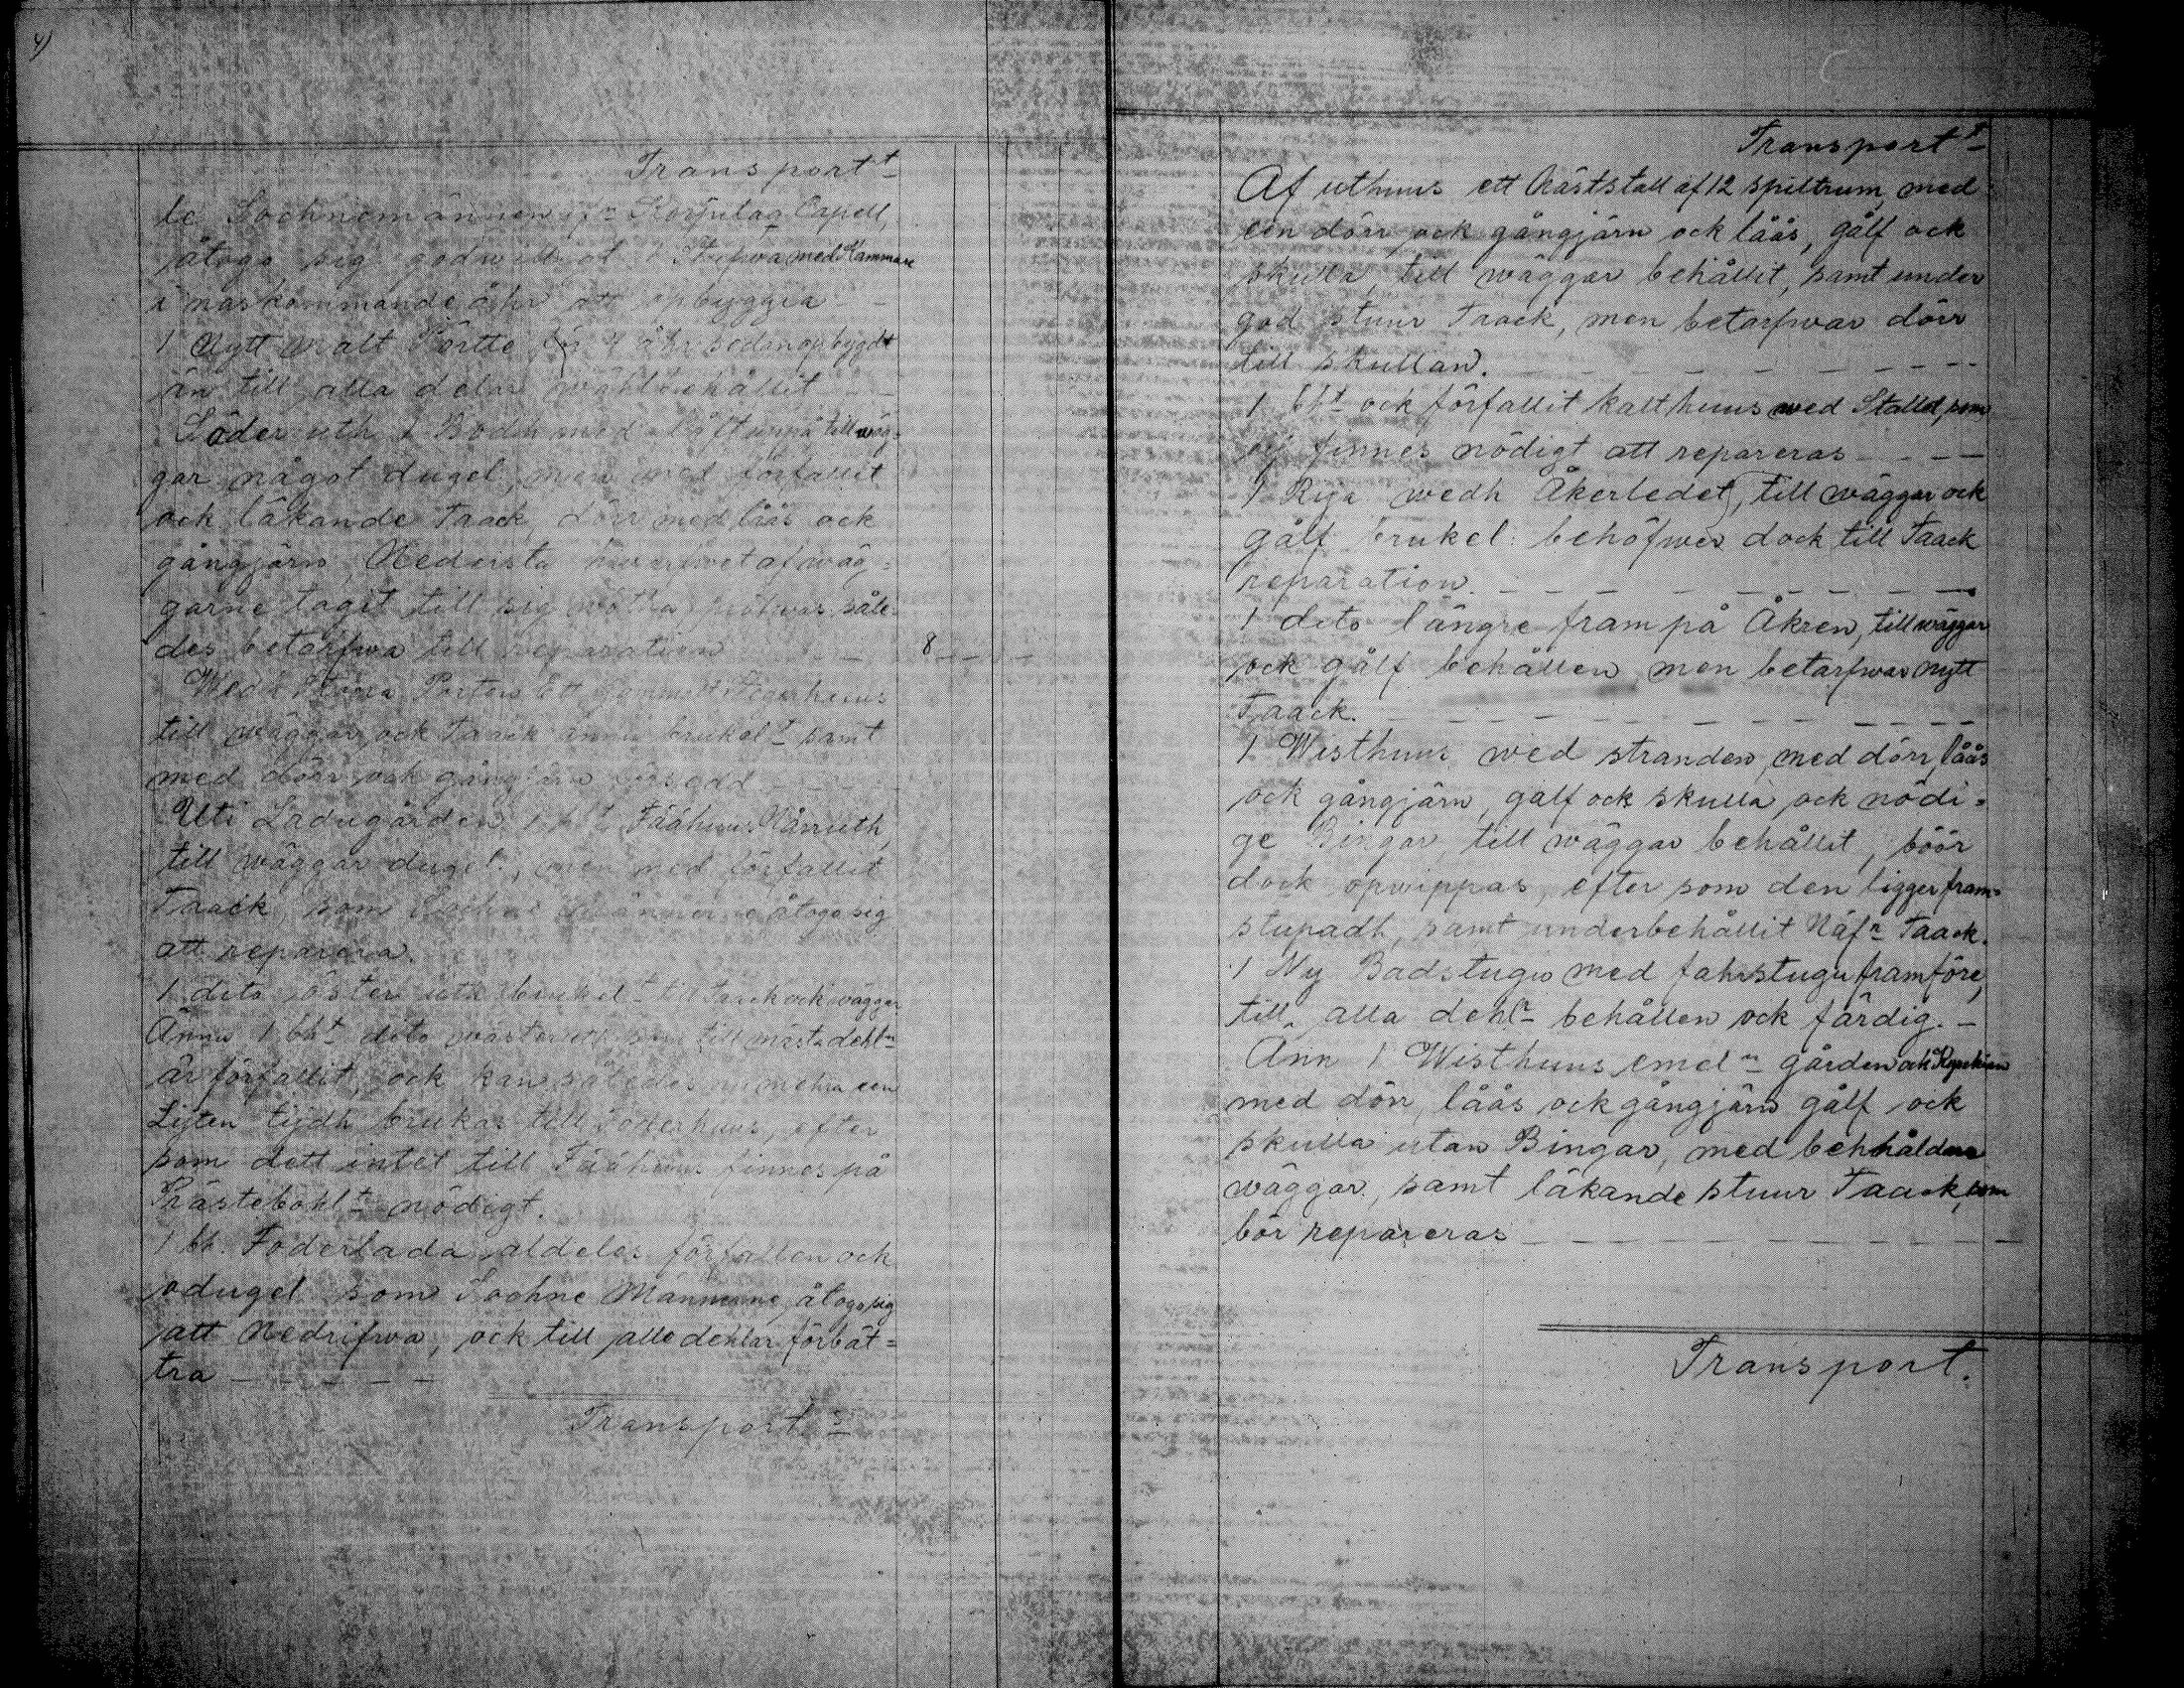 4)
Transport t
le Sochnemännen fn Korpulax Capell,
åtogo sig godwill at 1 Stufwa med Kammare
i näskommande åhr att opbyggia
1 Nytt Swalt Pörtte för 4 åhr sedan opbygdt
än till alla delar wähl behållit
Söder uth 1 Bodh med låft uppå till wäg-
gar något dugel, men med förfallit
ock läkande Taack, dörr med låås ock
gångjärn, Nedersta hwarfwet af wäg-
garne tagit till sig rötha, pröfwas såle-
des betarfwa till reparation 8 — —
Wedh Stora Porten Ett gammalt huus
till wäggar ock Taack ännu brukel t samt
med dörr ock gångjärn låås godd
Uti Ladugården 1 bh t Fäähuus Nårruth,
till wäggar dugel., men med förfallit
Taack, som Sochne Männerne åtogo sig
att reparera.
1 dito öster uth brukel t till Taack ock wäggar
Ännu 1 bh t dito wäster uth som till mästa dehln
är förfallit, ock kan således nu mehra een
Lijten tijdh brukas till Foderhuus, efter
som dett intet till Fäähuus finnes på
Prästebohl t nödigt.
1 bh. Foderlada aldeles förfallen ock
odugel som Sochne Männerne åtogo sig
att Nedrifwa, ock till alla dehlar förbät-
tra — — — — —
Transport
Transport t
Af uthuus ett Häststall af 12 spiltrum, med
een dörr ock gångjärn ock låås, gålf ock
skulla, till wäggar behållit, samt under
god stuur Taack, men betarfwar dörr
till skullan. — — — — — — — — —
1 bh t ock förfallit kalthuus wed Stallet som
ej finnes nödigt att repareras — — —
1 Rija wedh Åkerledet, till wäggar ock
gålf brukel: behöfwer dock till Taack
reparation. — — — — — — — — —
1 dito längre fram på Åkren, till wäggar
ock gålf behållen men betarfwar nytt
Taack. — — — — — — — — — — —
1 Wisthuus wed stranden, med dörr, låås
ock gångjärn, galf ock skulla ock nödi-
ge Bingar, till wäggar behållit, böör
dock opwippas, efter som den ligger fram-
stupadh, samt underbehållit Näfr Taack.
1 Ny Badstugu med fahrstugu framföre,
till alla dehlr behållen ock färdig. —
Änn 1 Wisthuus emeln gården ock
med dörr, låås ock gångjärn gålf ock
skulla utan Bingar, med behhåldne
wäggar, samt läkande stuur Taack, som
bör repareras — — — — — — — — —
Transport.